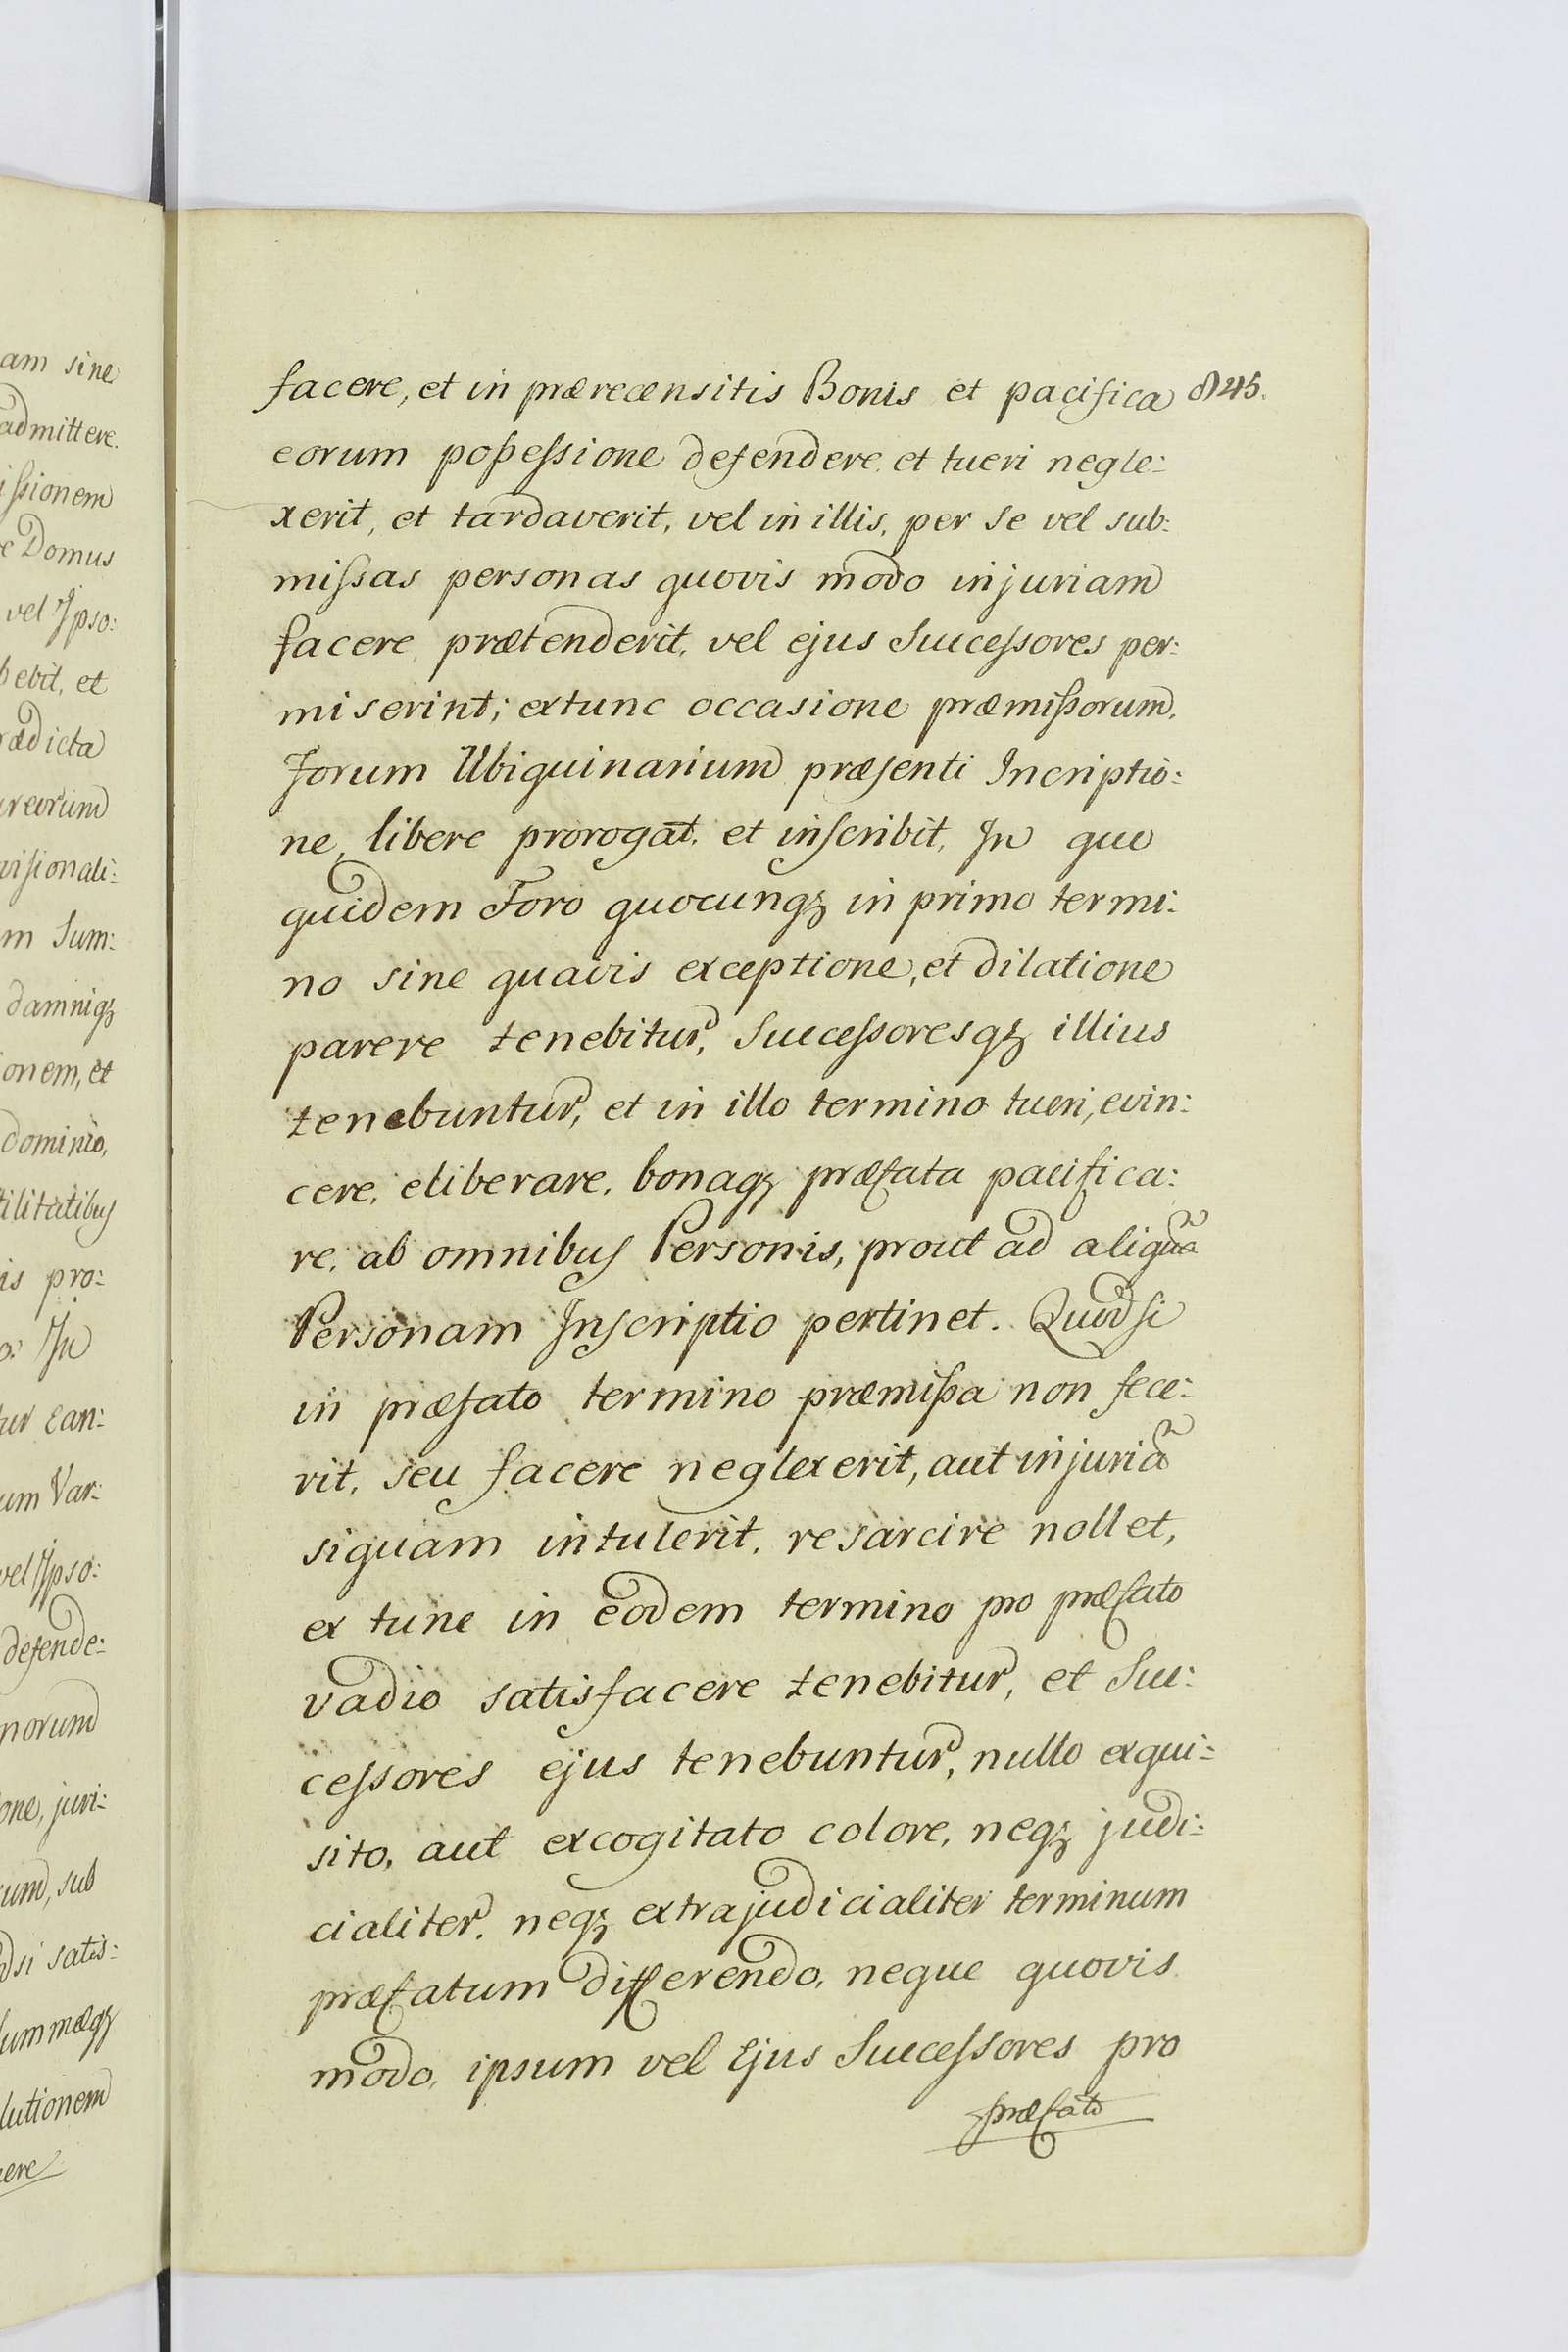 am sine
admittere.
issionem
e Domus
vel Ipso:
bebit, et
rædicta
ureorum
visionali:
m Sum:
damniqꝫ
ionem, et
dominio,
tilitatibus
is pro:
o: In
tur ean:
um Var:
vel Ipso:
defende:
norum
one, juri:
um, sub
dsi satis:
summæqꝫ
lutionem
cere
facere, et in prærecensitis Bonis et pacifica 845.
eorum possessione defendere et tueri negle:
xerit, et tardaverit, vel in illis, per se vel sub:
missas personas quovis modo injuriam
facere prætenderit, vel ejus Successores per:
miserint; extunc occasione præmissorum,
Forum Ubiquinarium præsenti Incriptio:
ne, libere prorogat, et inscribit, In quo
quidem Foro quocunqꝫ in primo termi:
no sine quavis exceptione, et dilatione
parere tenebitur, Successoresqꝫ illius
tenebuntur, et in illo termino tueri, evin:
cere, eliberare, bonaqꝫ præfata pacifica:
re, ab omnibus Personis, prout ad aliquã
Personam Inscriptio pertinet. Quodsi
in præfato termino præmissa non fece:
rit, seu facere neglexerit, aut injuriã
siquam intulerit, resarcire nollet,
ex tunc in eodem termino pro præfato
vadio satisfacere tenebitur, et Suc:
cessores ejus tenebuntur, nullo exqui:
sito, aut excogitato colore, neqꝫ judi:
cialiter, neqꝫ extrajudicialiter terminum
præfatum differendo, neque quovis
modo, ipsum vel Ejus Successores pro
præfato